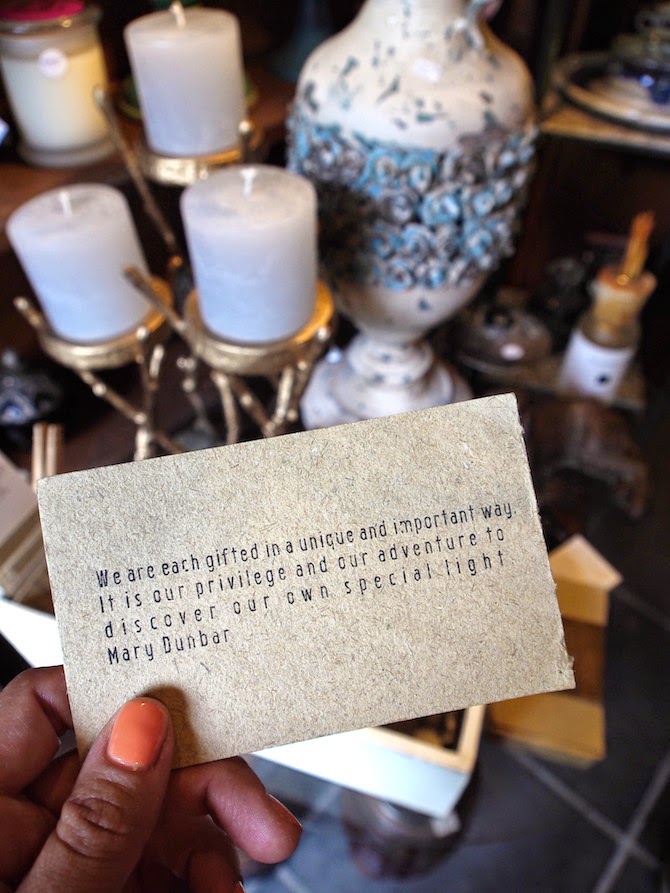 We are each gifted in a unique and important way.
It is our privilege and our adventure to
discover our own special light
Mary Dunbar